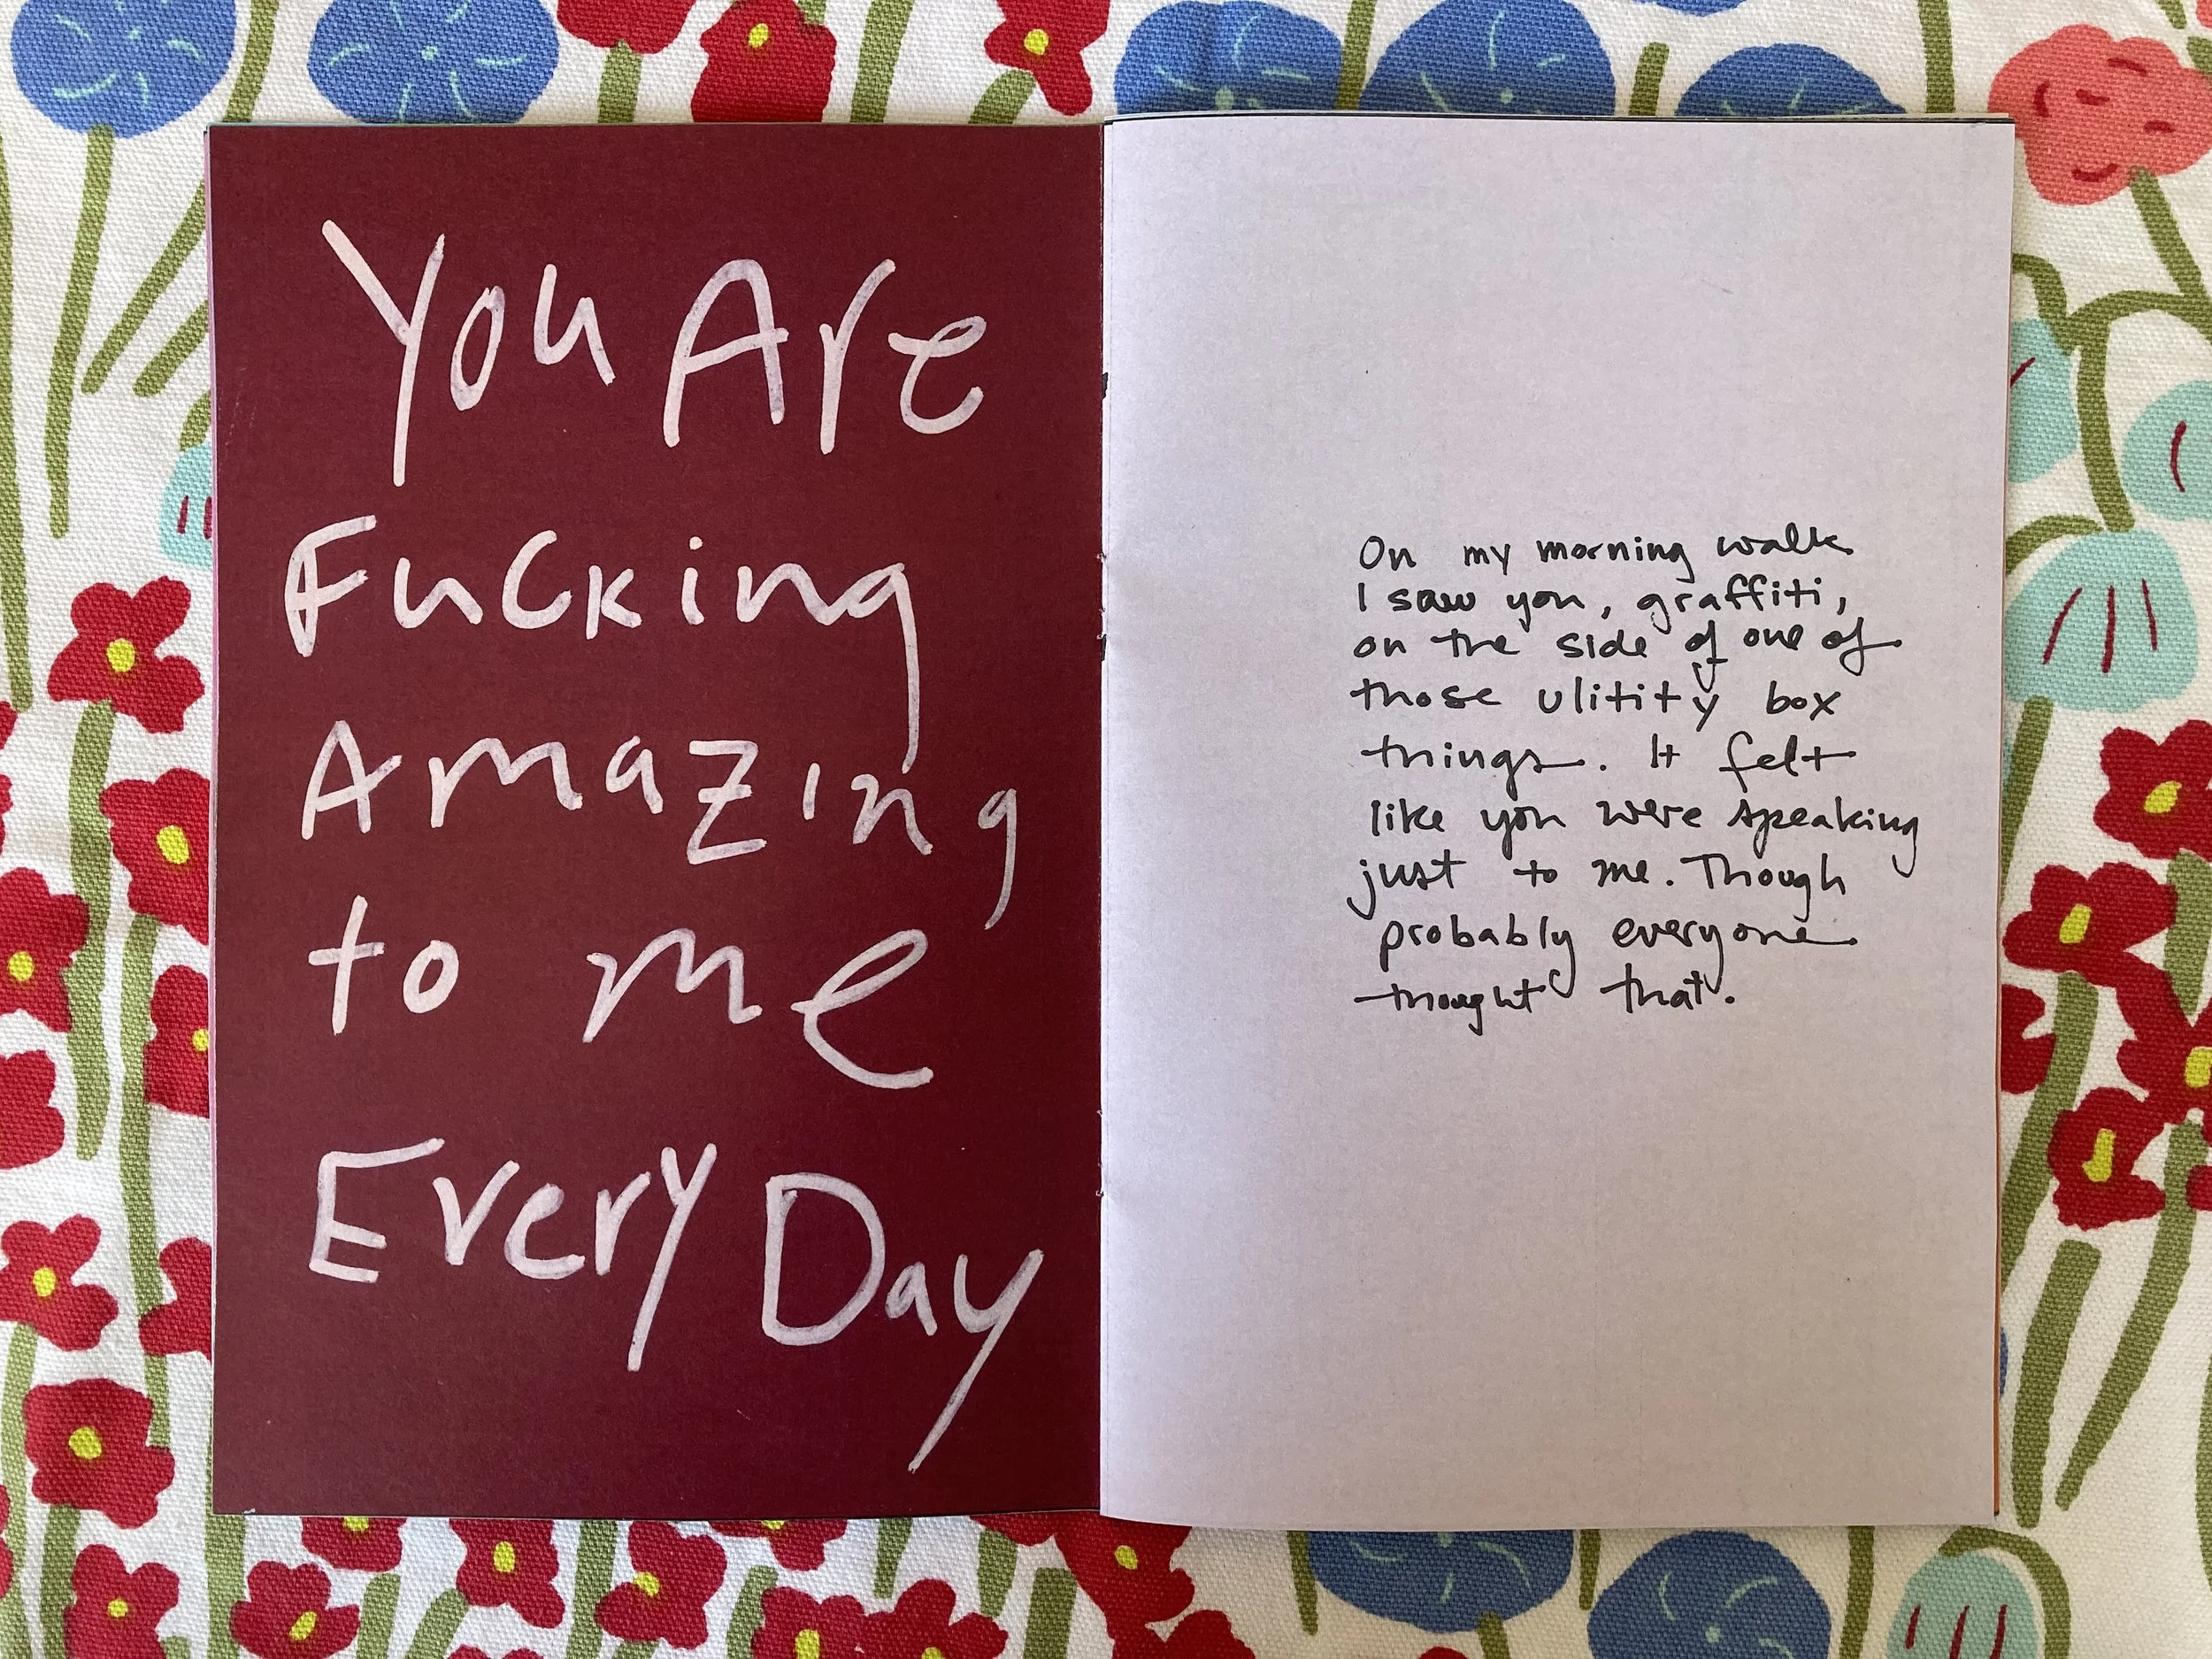 You Are
Fucking
Amazing
to me
Every Day
On my morning walk
I saw you, graffiti,
on the side of one of
those ulitity box
things. It felt
like you were speaking
just to me. Though
probably everyone
thought that.